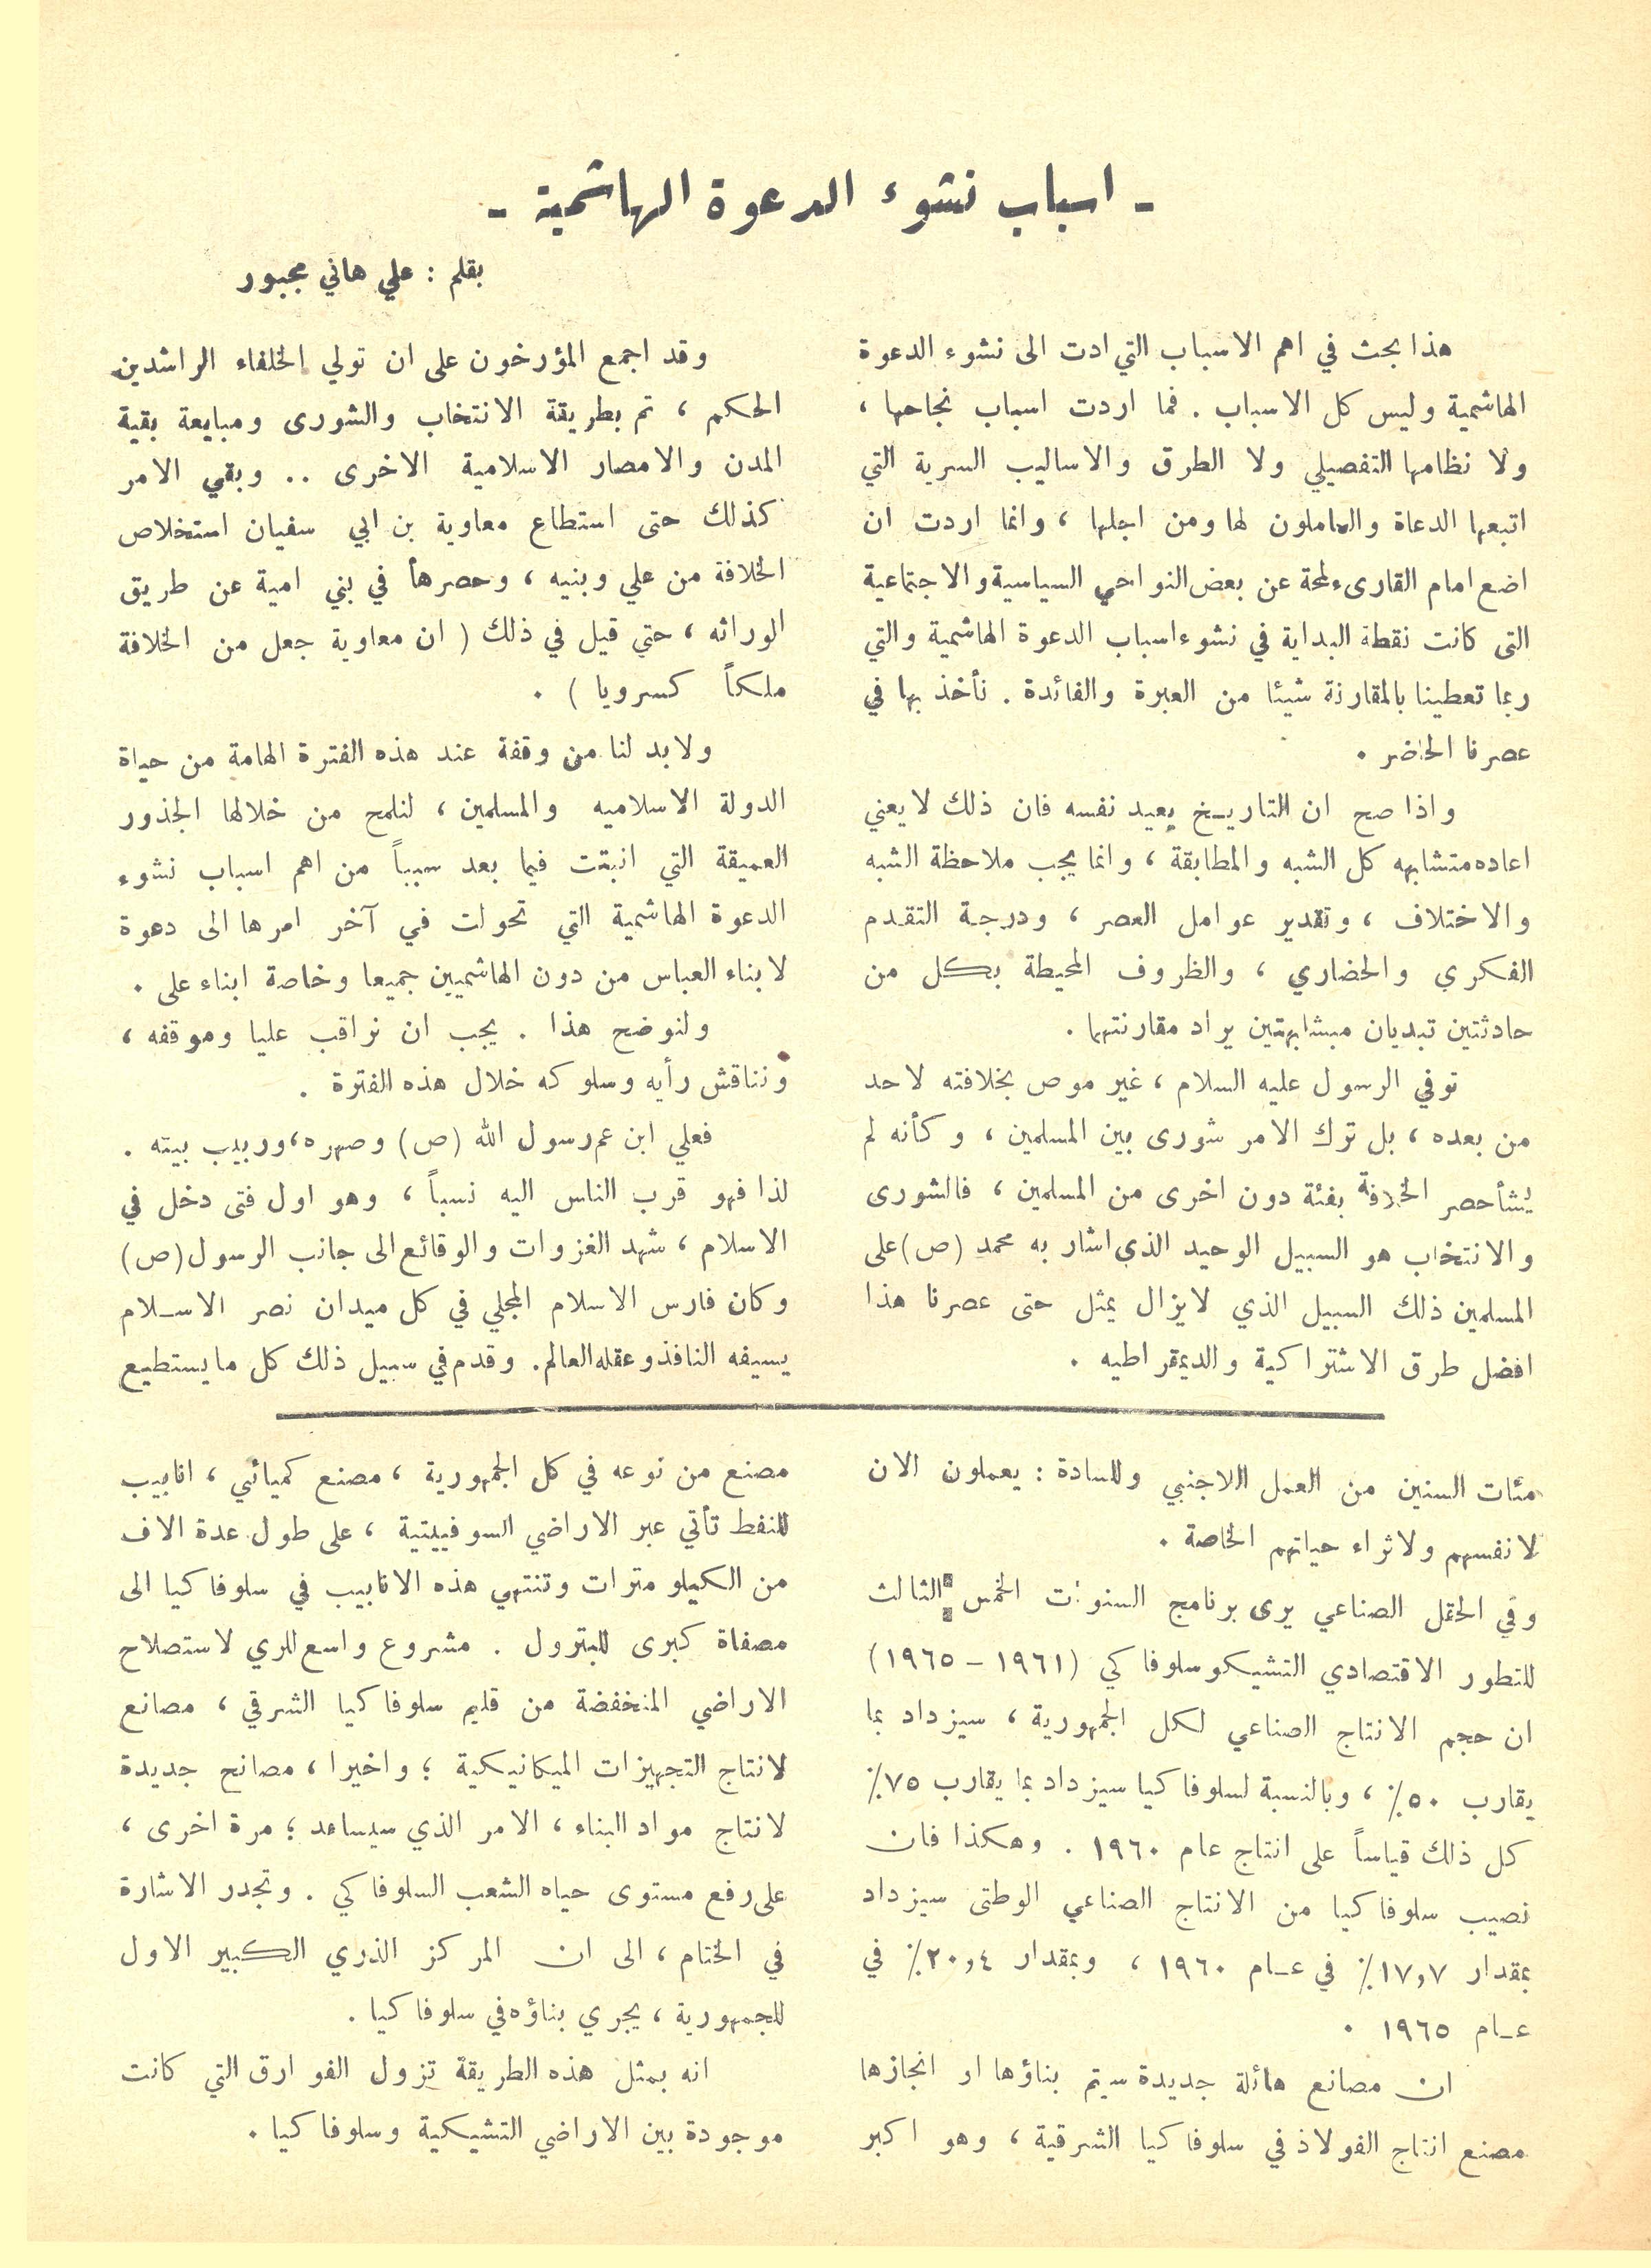 - اسباب نشوء الدعوة الهاشمية -
بقلم : علي هاني مجبور
هذا بحث في اهم الاسباب التي ادت الى نشوء الدعوة
الهاشمية وليس كل الاسباب . فما اردت اسباب نجاحها ،
ولا نظامها التفصيلي ولا الطرق والاساليب السرية التي
اتبعها الدعاة والعاملون لها ومن اجلها ، وانما اردت ان
اضع امام القارىء لمحة عن بعض النواحي السياسية والاجتماعية
التي كانت نقطة البداية في نشوء اسباب الدعوة الهاشمية والتي
ربما تعطينا بالمقارنة شيئا من العبرة والفائدة . نأخذ بها في
عصرنا الحاضر .
واذا صح ان التاريـخ يعيد نفسه فان ذلك لا يعني
اعاده متشابهه كل الشبه والمطابقة ، وانما يجب ملاحظة الشبه
والاختلاف ، وتقدير عوامل العصر ، ودرجة التقدم
الفكري والحضاري ، والظروف المحيطة بكل من
حادثتين تبديان مبشابهتين يراد مقارنتهما .
توفي الرسول عليه السلام ، غير موص بخلافته لاحد
من بعده ، بل ترك الامر شورى بين المسلمين ، وكأنه لم
يشأ حصر الخلافة بفئة دون اخرى من المسلمين ، فالشورى
والانتخاب هو السبيل الوحيد الذي اشار به محمد (ص) على
المسلمين ذلك السبيل الذي لا يزال يمثل حتى عصرنا هذا
افضل طرق الاشتراكية والديمقراطيه .
وقد اجمع المؤرخون على ان تولي الخلفاء الراشدين
الحكم ، تم بطريقة الانتخاب والشورى ومبايعة بقية
المدن والامصار الاسلامية الاخرى .. وبقي الامر
كذلك حتى استطاع معاوية بن ابي سفيان استخلاص
الخلافة من علي وبنيه ، وحصرها في بني امية عن طريق
الوراثه ، حتي قيل في ذلك ( ان معاوية جعل من الخلافة
ملكاً كسرويا ) .
ولا بد لنا من وقفة عند هذه الفترة الهامة من حياة
الدولة الاسلاميه والمسلمين ، لنلمح من خلالها الجذور
العميقة التي انبقت فيما بعد سبباً من اهم اسباب نشوء
الدعوة الهاشمية التي تحولت في آخر امرها الى دعوة
لابناء العباس من دون الهاشميين جميعا وخاصة ابناء على .
ولنوضح هذا . يجب ان نراقب عليا وموقفه ،
ونناقش رأيه وسلوكه خلال هذه الفترة .
فعلي ابن عم رسول الله (ص) وصهره ، وربيب بيته .
لذا فهو قرب الناس اليه نسباً ، وهو اول فتى دخل في
الاسلام ، شهد الغزوات والوقائع الى جانب الرسول (ص)
وكان فارس الاسلام المجلي في كل ميدان نصر الاسـلام
يسيفه النافذ وعقله العالم . وقدم في سبيل ذلك كل ما يستطيع
مئات السنين من العمل الاجنبي وللسادة : يعملون الان
لانفسهم ولاثراء حياتهم الخاصة .
وفي الحقل الصناعي يرى برنامج السنوات الخمس الثالث
للتطور الاقتصادي التشيكوسلوفاكي (١٩٦١ – ١٩٦٥)
ان حجم الانتاج الصناعي لكل الجمهورية ، سيزداد بما
يقارب ٥٠٪ ، وبالنسبة لسلوفاكيا سيزداد بما يقارب ٧٥٪
كل ذلك قياساً على انتاج عام ١٩٦٠ . وهكذا فان
نصيب سلوفاكيا من الانتاج الصناعي الوطتى سيزداد
بمقدار ١٧,٧٪ في عـام ١٩٦٠ ، وبمقدار ٢٠,٤٪ في
عـام ١٩٦٥ .
ان مصانع هائلة جديدة سيتم بناؤها او انجازها
مصنع انتاج الفولاذ في سلوفاكيا الشرقية ، وهو اكبر
مصنع من نوعه في كل الجمهورية ، مصنع كميائي ، انابيب
للنفط تأتي عبر الاراضي السوفييتية ، على طول عدة الاف
من الكيلو مترات وتنتهي هذه الانابيب في سلوفاكيا الى
مصفاة كبرى للبترول . مشروع واسع للري لاستصلاح
الاراضي المنخفضة من قليم سلوفاكيا الشرقي ، مصانع
لانتاج التجهيزات الميكانيكية ؛ واخيرا ، مصانح جديدة
لانتاج مواد البناء ، الامر الذي سيساعد ؛ مرة اخرى ،
على رفع مستوى حياه الشعب السلوفاكي . وتجدر الاشارة
في الختام ، الى ان المركز الذري الكبير الاول
للجمهورية ، يجري بناؤه في سلوفاكيا .
انه بمثل هذه الطريقة تزول الفوارق التي كانت
موجودة بين الاراضي التشيكية وسلوفاكيا .